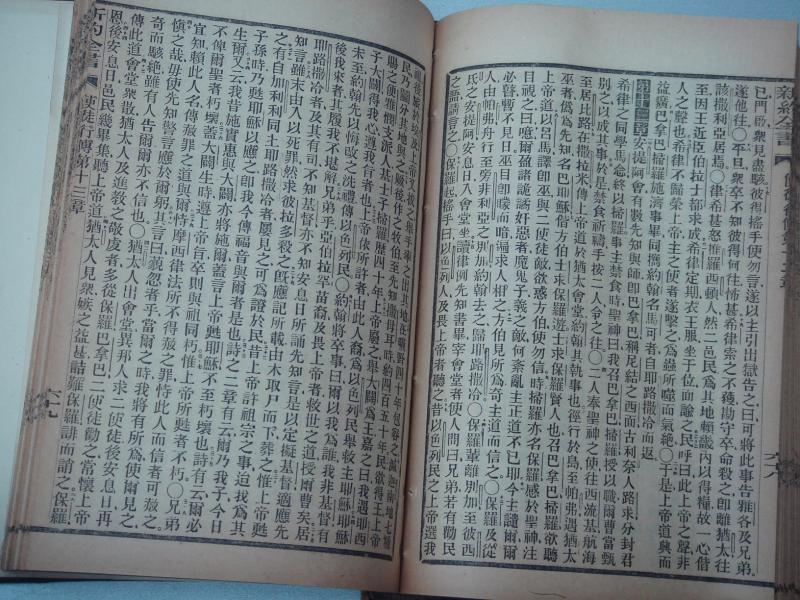 新約全書
已門啟衆見盡駭彼得搖手使勿言遂以主引出獄告之曰可將此事告雅各及兄弟
遂他往○平旦衆卒不知彼得何往怖甚希律索之不獲勘守卒命殺之卽離猶太往
該撒利亞居焉○律希甚怒惟羅西頓人然二邑民爲其地頼畿內以得糧故一心偕
至因王近臣伯拉士都求成希律定期衣王服坐于位面諭之民呼曰此上帝之聲非
人之聲也希律不歸榮上帝主之使者遂擊之爲蟲所噬而氣絕○于是上帝道興而
益廣巴拿巴掃羅施濟事畢同攜約翰名馬可者自耶路撒冷而返
第十三章安提阿會有數先知與師卽巴拿巴稱尼結之西面古利奈人路求分封君
之同學馬念終以掃羅事主禁食時聖神曰我召巴拿巴掃羅授以職爾曹當甄
別之以成其事於是禁食祈禱手按二人令之往○二人奉聖神之使往西流基航海
至居比路撒拉米傳上帝道於猶太會堂約翰執其事也徑行於島至帕弗遇猶太
巫者僞爲先知名巴耶穌偕方伯士求保羅遊士求保羅賢人也召巴拿巴掃羅欲聽
上帝道以呂馬譯卽巫與二使徒敵欲惑方伯使勿信時掃羅亦名保羅感於聖神注
目視之曰噫爾盈諸詭譎奸惡者魔鬼子義之敵何紊亂主正道不已耶今主譴爾爾
必瞽暫不見日巫目卽曚而暗遍求人相之方伯見所爲奇主道而信之○保羅及從
人由帕弗舟行至旁非利亞之別加約翰去之歸耶路撒冷○保羅輩離別加至彼西
氏之安提阿安息日入會堂坐讀律例先知書畢宰會堂者使人問曰兄弟若有勸民
之語請言之○保羅起搖手曰以色列人及畏上帝者聽之昔以色列民之上帝選我
六八
祖後旅於埃及上帝又拔之舉手率之出其地在曠野四十年包容之滅迦南地七種
民乃鬮分其地與之厥後作之牧伯至先知撒母耳時約四百五十年民欲得王上帝
賜之便雅憫支派人基士子掃羅歷四十年上帝廢之舉大闢爲王嘉之曰我遇耶西
子大闢得我之心遵我旨者也上帝依所許者由此人裔爲以色列民舉救主耶穌耶穌
未至約翰先以悔改之洗禮傳以色列民○約翰將卒事曰爾以我爲誰我非基督有
後我來者其履我不堪解兄弟乎亞伯拉罕苗裔及畏上帝者救世之道授爾曹矣居
耶路撒冷者與有司不知基督亦不知安息日所誦先知言是以定擬基督適應先
知言雖未由入以死罪然求彼拉多殺之旣應記所載由木取尸而下葬之惟上帝甦
之有自加利利同上耶路撒冷者屢見之可爲證於民昔上帝許祖宗之事迨我爲其
子孫時乃甦耶穌以應之卽我今傳福音與爾者是也詩之二章有云爾乃我子今日
生爾又云我昔施實惠與大闢亦將施爾蓋言上帝甦耶穌不至朽壞也詩有云爾必
不俾爾聖者朽壞蓋大闢生時遵上帝旨卒則與祖同朽惟上帝所甦者不朽○兄弟
宜知賴此人名傳赦罪之道與爾恃摩西律法所不得赦之罪恃此人而信者可赦之
慎之哉毋使先知警言應於爾躬其言曰藐忽者乎當爾之時我將有所爲使爾見之
奇而駭絕雖有人告爾爾亦不信也○猶太人出會堂異邦人求二使徒後安息日再
傳此道會堂衆散猶太人及進敎之敬虔者多從保羅巴拿巴二使徒勸之當懷上帝
恩後安息日邑民幾畢集聽上帝道猶太人見衆嫉之益甚詰難保羅誹而誚之保羅
新約全書 使徒行傳第十三章 六九